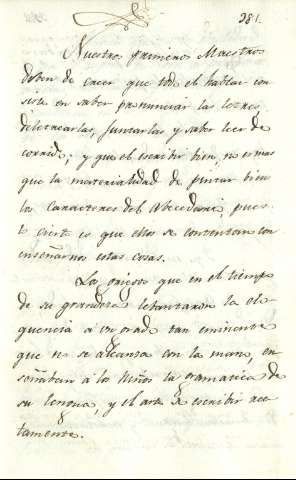 381.
Nuestros primeros Maestros
deben de creer que todo el hablar con
siste en saber pronunciar las letras,
deletrearlas, juntarlas y saber leer de
corrido; y que el escribir bien, no es mas
que la materialidad de pintar bien
los Caracteres del Abecedario, pues
lo cierto es que ellos se contentan con
enseñarnos estas cosas.
Los griegos que en el tiempo
de su grandeza lebantaron la elo
quencia á un grado tan eminente
que no se alcanza con la mano, en
señaban á los Niños la gramatica de
su lengua, y el arte de escribir rec
tamente.